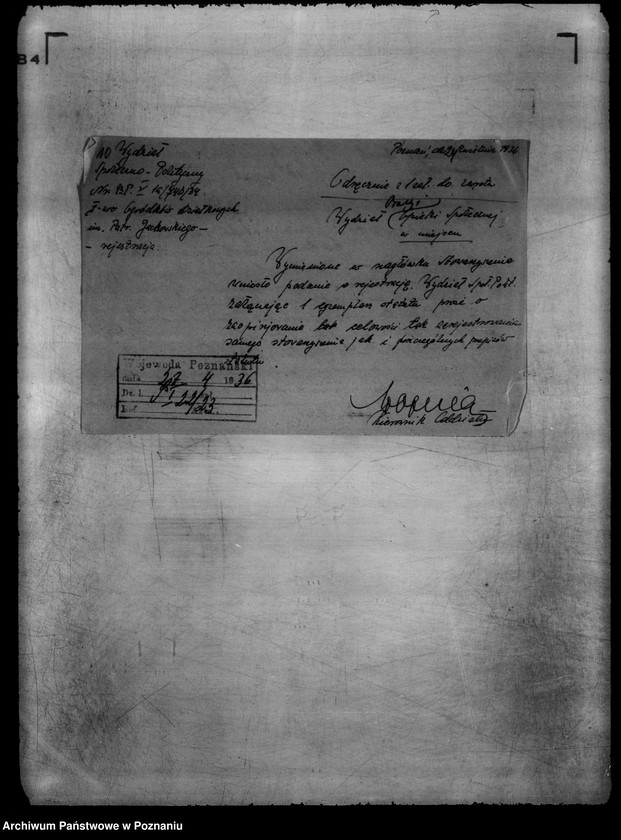 84
UW Wydział
Społeczno-Polityczny
T-wo Ogródków działkowych
im.
- rejestracja.
Poznań, dn. kwietnia 1936
Odręcznie z 1 zał.
Pracy i
Wydział Opieki Społecznej
w miejscu
Wymienione w nagłówku stowarzyszenie
wniosło podanie o rejestrację. Wydział Społ. Polit.
załączając 1 egzemplarz statutu prosi o
zaopinjowanie tak celowości tak zarejestrowania
samego stowarzyszenia jak i poszczególnych przepisów
statutu
Wojewoda Poznański
dnia 4 1936
Dz. l.
Ref.
Kierownik Oddziału
Archiwum Państwowe w Poznaniu